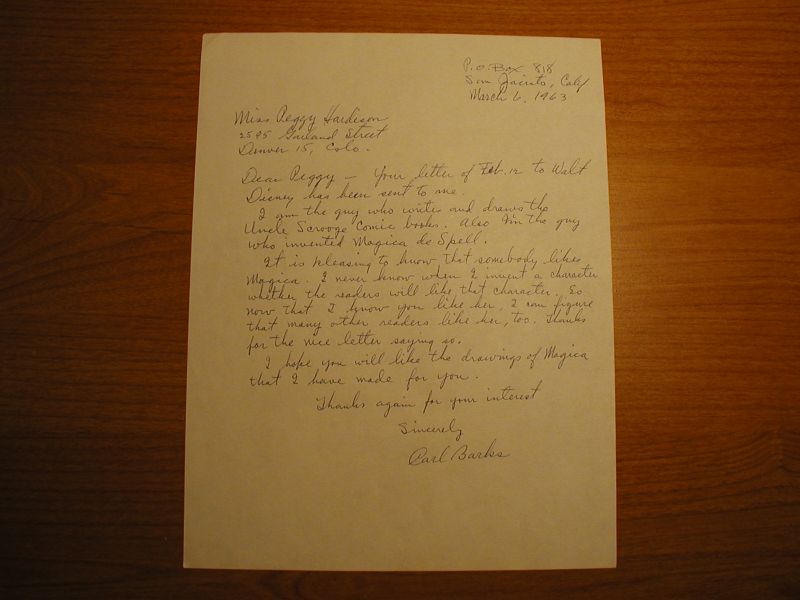 P.O. Box 818
San Jacinto, Calif
March 6, 1963
Miss Peggy Hardison
2595 Garland Street
Denver 15, Colo.
Dear Peggy — Your letter of Feb. 12 to Walt
Disney has been sent to me.
I am the guy who writes and draws the
Uncle Scrooge Comic books. Also I'm the guy
who invented Magica de Spell.
It is pleasing to know that somebody likes
Magica. I never know when I invent a character
whether the readers will like that character. So
now that I know you like her, I can figure
that many other readers like her, too. Thanks
for the nice letter saying so.
I hope you will like the drawings of Magica
that I have made for you.
Thanks again for your interest
Sincerely
Carl Barks